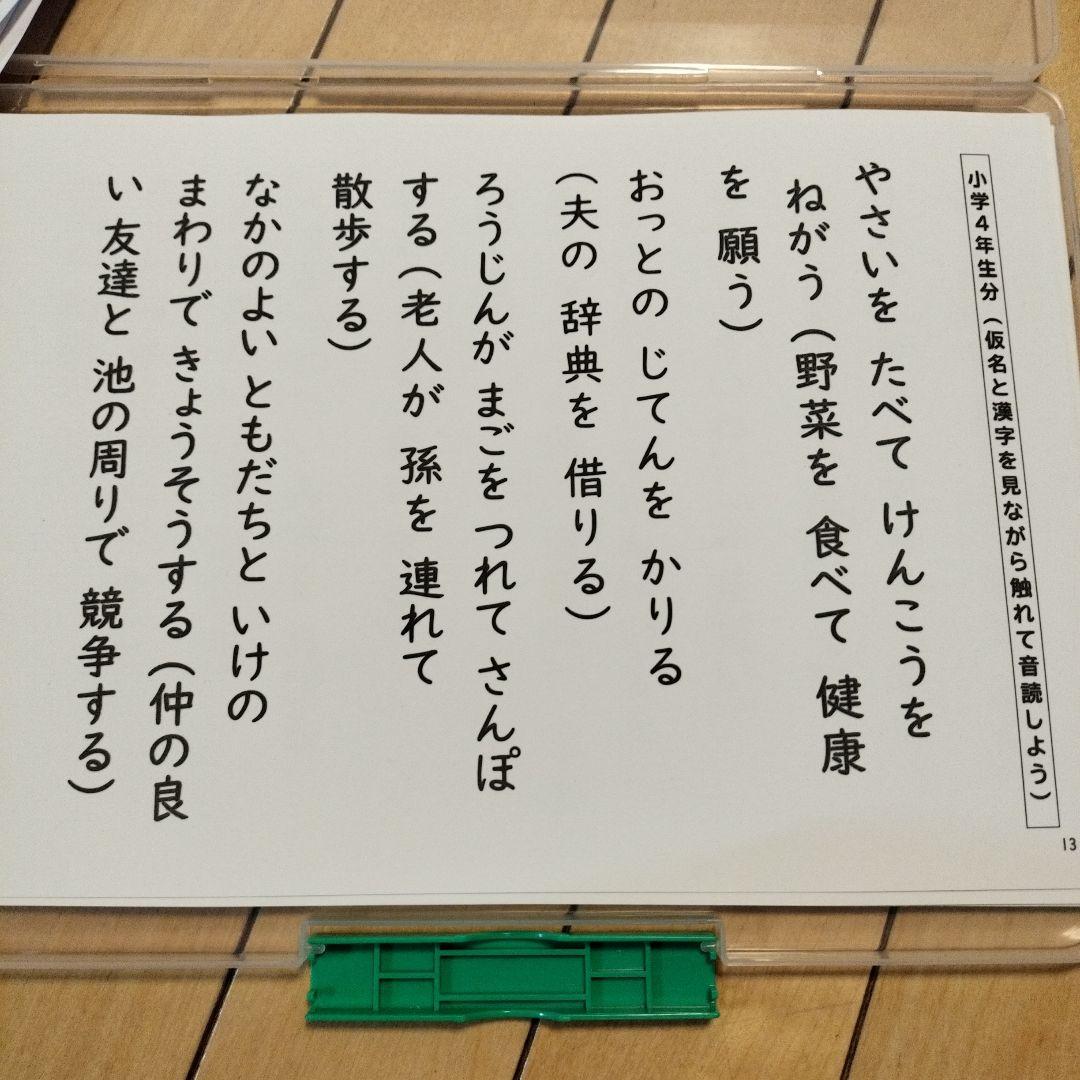 小学4年生分(仮名と漢字を見ながら触れて音読しよう)
やさいを たべて けんこうを
ねがう(野菜を 食べて 健康
を 願う)
おっとの じてんを かりる
(夫の 辞典を 借りる)
ろうじんが まごを つれて さんぽ
する(老人が 孫を 連れて
散歩する)
なかのよい ともだちと いけの
まわりで きょうそうする(仲の良
い 友達と 池の周りで 競争する)
13